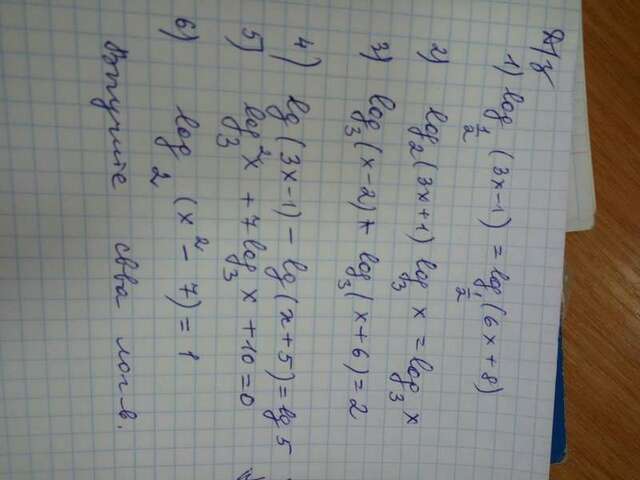 Д/з
1) log_{1/2} (3x-1) = log_{1/2} (6x+8)
2) log_2 (3x+1) log_3 x = log_3 x
3) log_3 (x-2) + log_3 (x+6) = 2
4) lg (3x-1) - lg (x+5) = lg 5
5) log_3^2 x + 7 log_3 x + 10 = 0
6) log_2 (x^2 - 7) = 1
Выучите св-ва лог-в.